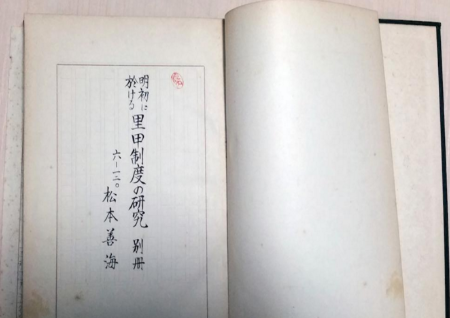 明初に
於ける
里甲制度の研究 別冊
六―一二〇
松本善海